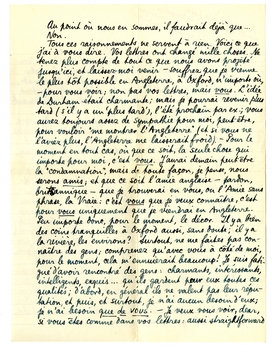 Au point où nous en sommes, il faudrait déjà que...
Non.
Tous ces raisonnements ne servent à rien. Voici ce que
j'ai à vous dire. Vos lettres ont changé mille choses. Ne
tenez plus compte de tout ce que nous avons projeté
jusqu'ici, et laissez-moi venir - souffrez que je vienne
le plus tôt possible en Angleterre, à Oxford, n'importe où,
- pour vous voir; non pas vos lettres, mais vous. L'idée
de Durham était charmante; mais je pourrai revenir plus
tard (s'il y a un "plus tard"), l'été prochain par ex; vous
aurez toujours assez de sympathie pour moi, peut-être,
pour vouloir "me montrer l'Angleterre" (et si vous ne
l'aviez plus, l'Angleterre me laisserait froid) - Pour le
moment en tout cas, où que ce soit, la seule chose qui
importe pour moi, c'est vous. J'aurai demain peut-être
la "condamnation", mais de toute façon, je pense, nous
serons amis; et que ce soit l'amie anglaise - pardon,
britannique - que je trouverai en vous, ou l'Amie sans
phrase, la Vraie: c'est vous que je veux connaître, c'est
pour vous uniquement que je viendrai en Angleterre.
Peu importe donc, pour le moment, le décor. S'il y a bien
des coins tranquilles à Oxford aussi, sans doute; il y a
la rivière, les environs? surtout ne me faites pas con-
naître des gens; comprenez qu'avec vous à côté de moi,
pour le moment, cela m'ennuierait beaucoup! Je suis fati-
gué d'avoir rencontré des gens: charmants, intéressants,
intelligents, exquis... qu'ils gardent pour eux toutes ces
qualités; d'abord, en général ils ne valent pas leur répu-
tation, et puis, et surtout, je n'ai aucun besoin d'eux;
je n'ai besoin que de vous. - Je veux vous voir, dear,
si vous êtes comme dans vos lettres: aussi straightforward